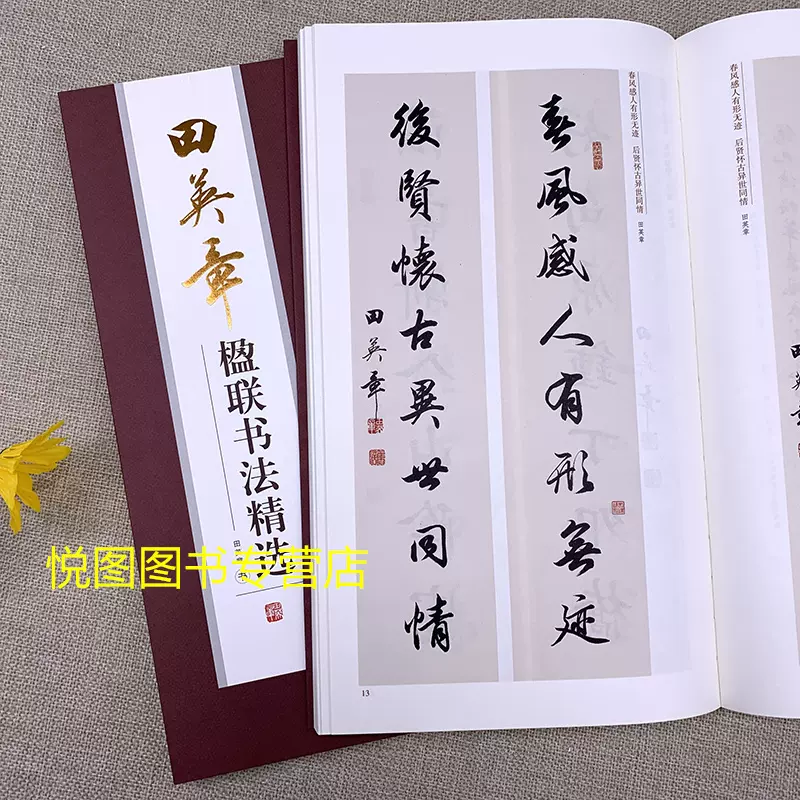 田英章
楹联书法精选
田
书
悦图图书专营店
春風感人有形無迹
後賢懷古異世同情
田英章
春风感人有形无迹 后贤怀古异世同情 田英章
13
春风感人有形无迹 后贤怀古异世同情 田英章
田英章